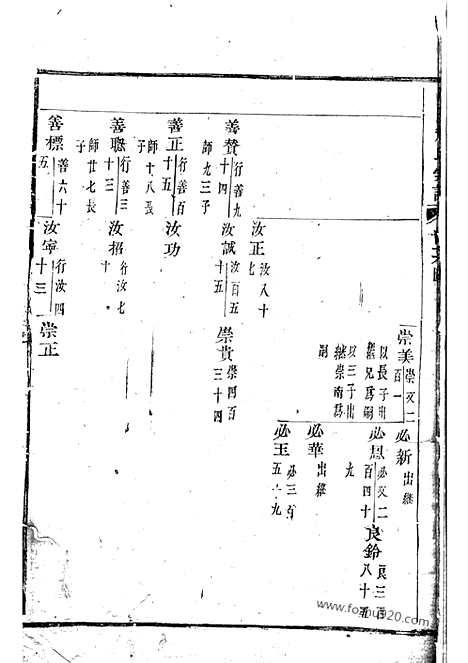 崇美 崇又二百一
以長子出繼兄爲嗣以三子出繼崇南爲嗣
必新 出繼
必恩 必又二百四十九
良鈴 良三百八十五
必華 出繼
必玉 必三百五十九
汝正 汝八十七
善贊 行善九十四
師九三子
汝誠 汝百五十五
崇貴 崇四百三十四
善正 行善百十五
師十八長子
汝功
善聰 行善三十三
師廿七長子
汝招 行汝七十
善標 善六十五
汝寧 行汝四十三
崇正
www.fomu020.com